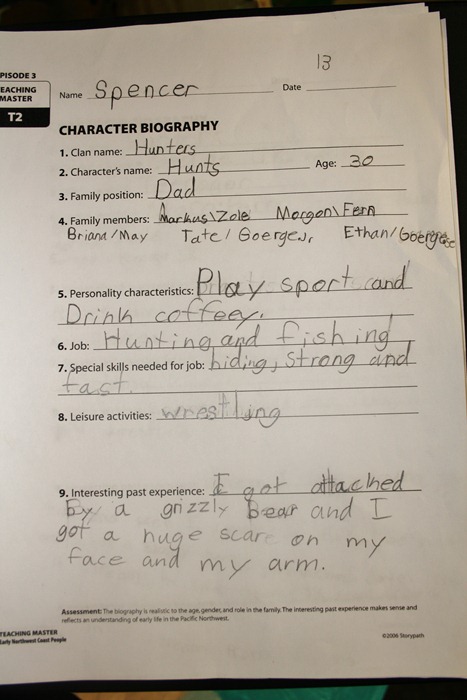 13
PISODE 3
EACHING
MASTER
T2
Name Spencer Date
CHARACTER BIOGRAPHY
1. Clan name: Hunters
2. Character's name: Hunts Age: 30
3. Family position: Dad
4. Family members: Markus\Zole Morgon\Fern
Briana/May Tate/Goerge Jr, Ethan/Goergese
5. Personality characteristics: Play sport and
Drink coffeey.
6. Job: Hunting and fishing
7. Special skills needed for job: hiding, Strong and
fast.
8. Leisure activities: wrestling
9. Interesting past experience: I got attached
By a grizzly Bear and I
got a huge scar on my
face and my arm.
Assessment: The biography is realistic to the age, gender, and role in the family. The interesting past experience makes sense and
reflects an understanding of early life in the Pacific Northwest.
TEACHING MASTER
Early Northwest Coast People
©2006 Storypath